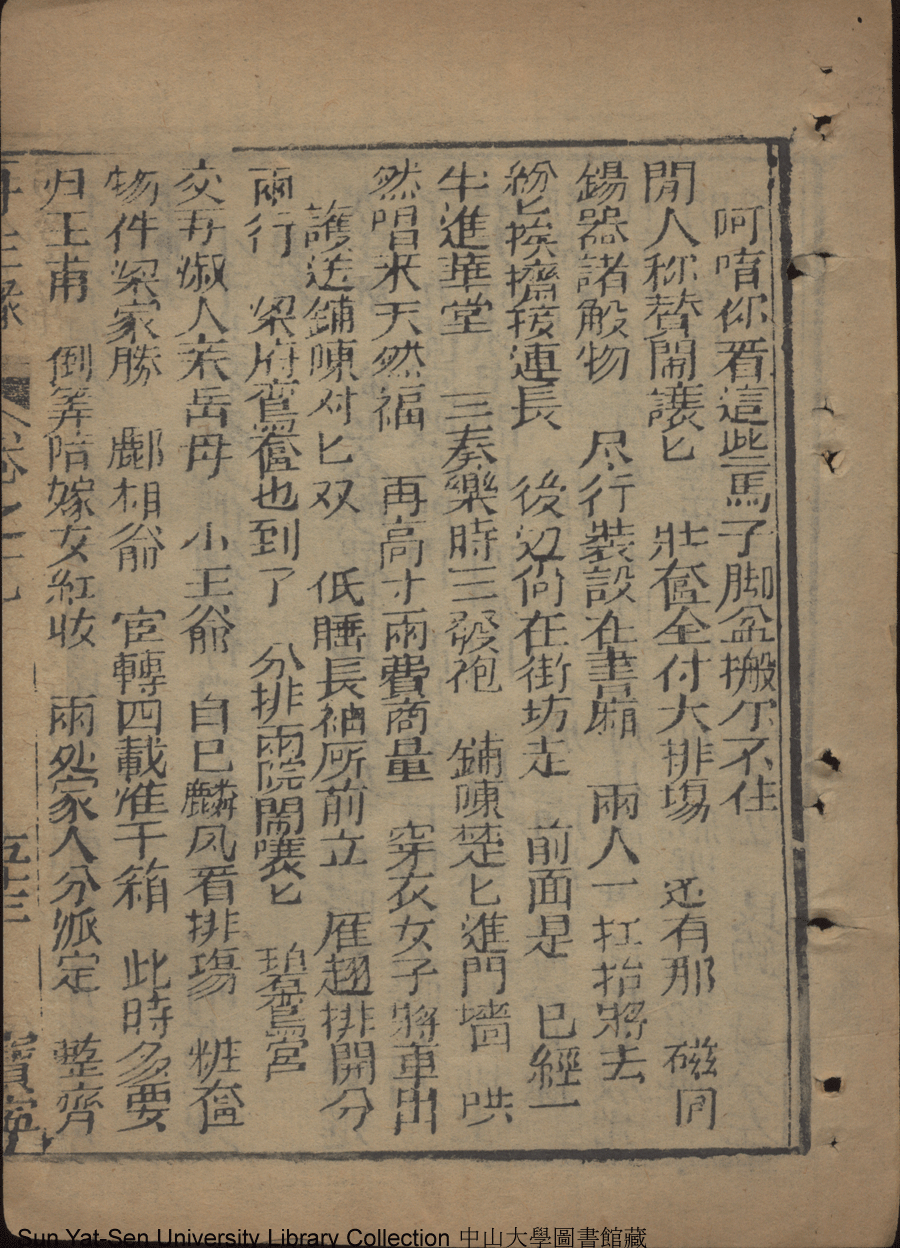 呵唷你看這些馬子脚盆搬尔不住
閒人称替鬧讓匕　壯奩全付大排場　还有那　磁同
錫器諸般物　尽行裝設在書廂　兩人一扛抬將去
紛匕挨擠接連長　後边尚在街坊走　前面是　已經一
牛進華堂　三奏樂時三發袍　鋪陳楚匕進門墻　哄
然唱来天然福　再高寸兩費商量　穿衣女子將車出
護送鋪陳对匕双　低睡長袖所前立　雁翅排開分
兩行　梁府鴦奩也到了　分排兩院鬧嚷匕　碧鸞宮
交再淑人来岳母　小王爺　自已麟凤看排塲　粧奩
物件梁家勝　酈相爺　宦轉四載准千箱　此時多要
归王甫　倒筭陪嫁女紅收　兩处家人分派定　整齊
再生緣　卷之十九　五十三　寶寧
Sun Yat-Sen University Library Collection 中山大學圖書館藏